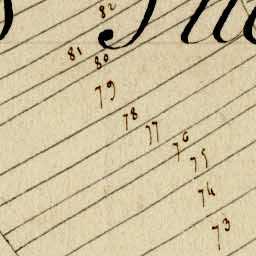 82
81
80
79
78
77
76
75
74
73